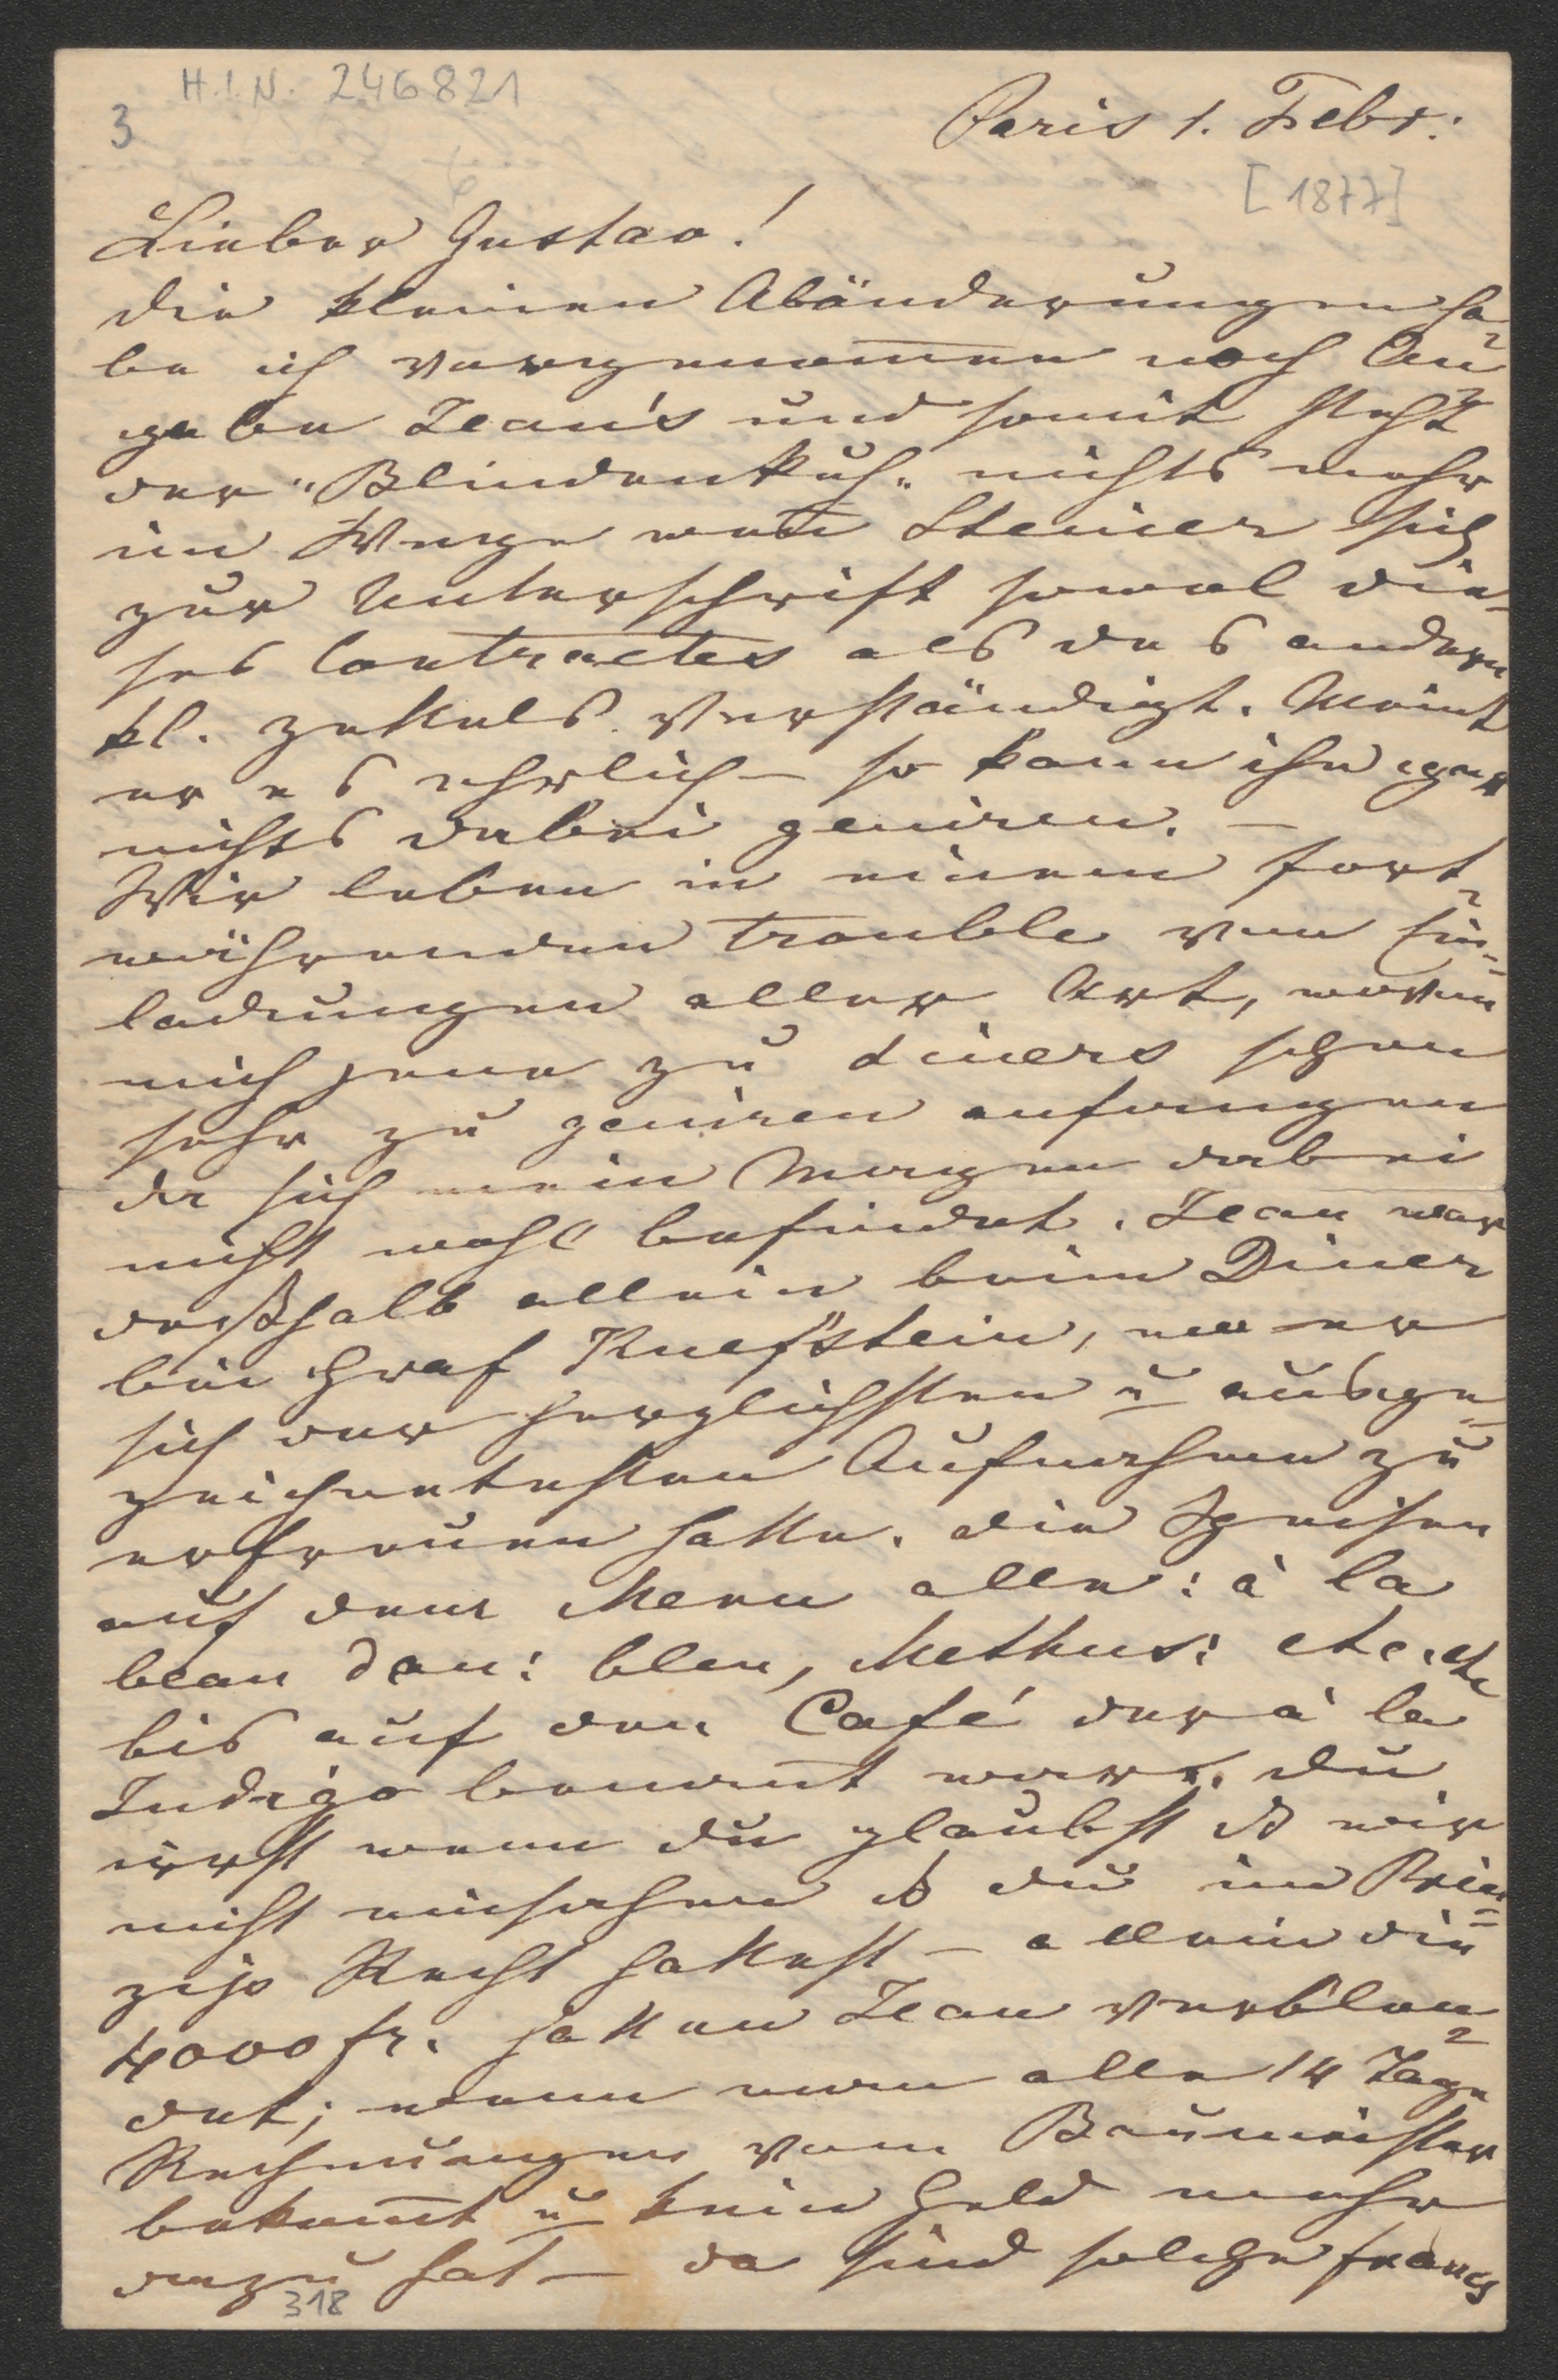 H.I.N. 246821
3
Paris 1. Febr:
[1877]
Lieber Gustav!
die kleinen Abänderungen ha-
be ich vorgenom̅en nach An-
gabe Jean's und somit steht
der "Blindenkuh" nichts mehr
im Wege wen̅ Steiner sich
zur Unterschrift sowol die-
ses Contractes als des andern
kl. Zettels verständigt. Meint
er es ehrlich – so kann ihn gar
nichts dabei geniren. –
Wir leben in einem fort-
währenden trouble von Ein-
ladungen aller Art, wovon
mich jene zu diners schon
sehr zu geniren anfangen
da sich mein Magen dabei
nicht wohl befindet. Jean war
deßhalb allein beim Diner
bei Graf Kuefstein, wo er
sich der herzlichsten u̅ ausge-
zeichnetesten Aufnahme zu
erfreuen hatte. die Speisen
auf dem Menu alle: à la
beau dan: bleu, Methus: etc. etc
bis auf den Café der à la
Indigo benan̅t war. du
irrst wenn du glaubst ds wir
nicht einsahen ds du im Prin-
zip Recht hattest – allein die
4000 fr. hatten Jean verblen-
det; wenn man alle 14 Tage
Rechnungen vom Baumeister
bekom̅t u̅ kein Geld mehr
dazu hat – da sind solche francs
318